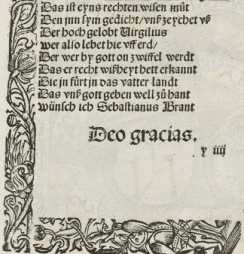 Das ist eyns rechten wisen můt
Den jnn syn gedicht / vnß zeychet vß
Der hoch gelobt Virgilius
wer also lebet hie vff erd /
Der wer by gott on zwiffel werdt
Das er recht wißheyt hett erkannt
Die jn fürt jn das vatter landt
Das vnß gott geben well zů hant
wünsch ich Sebastianus Brant
Deo gracias.
y iiij